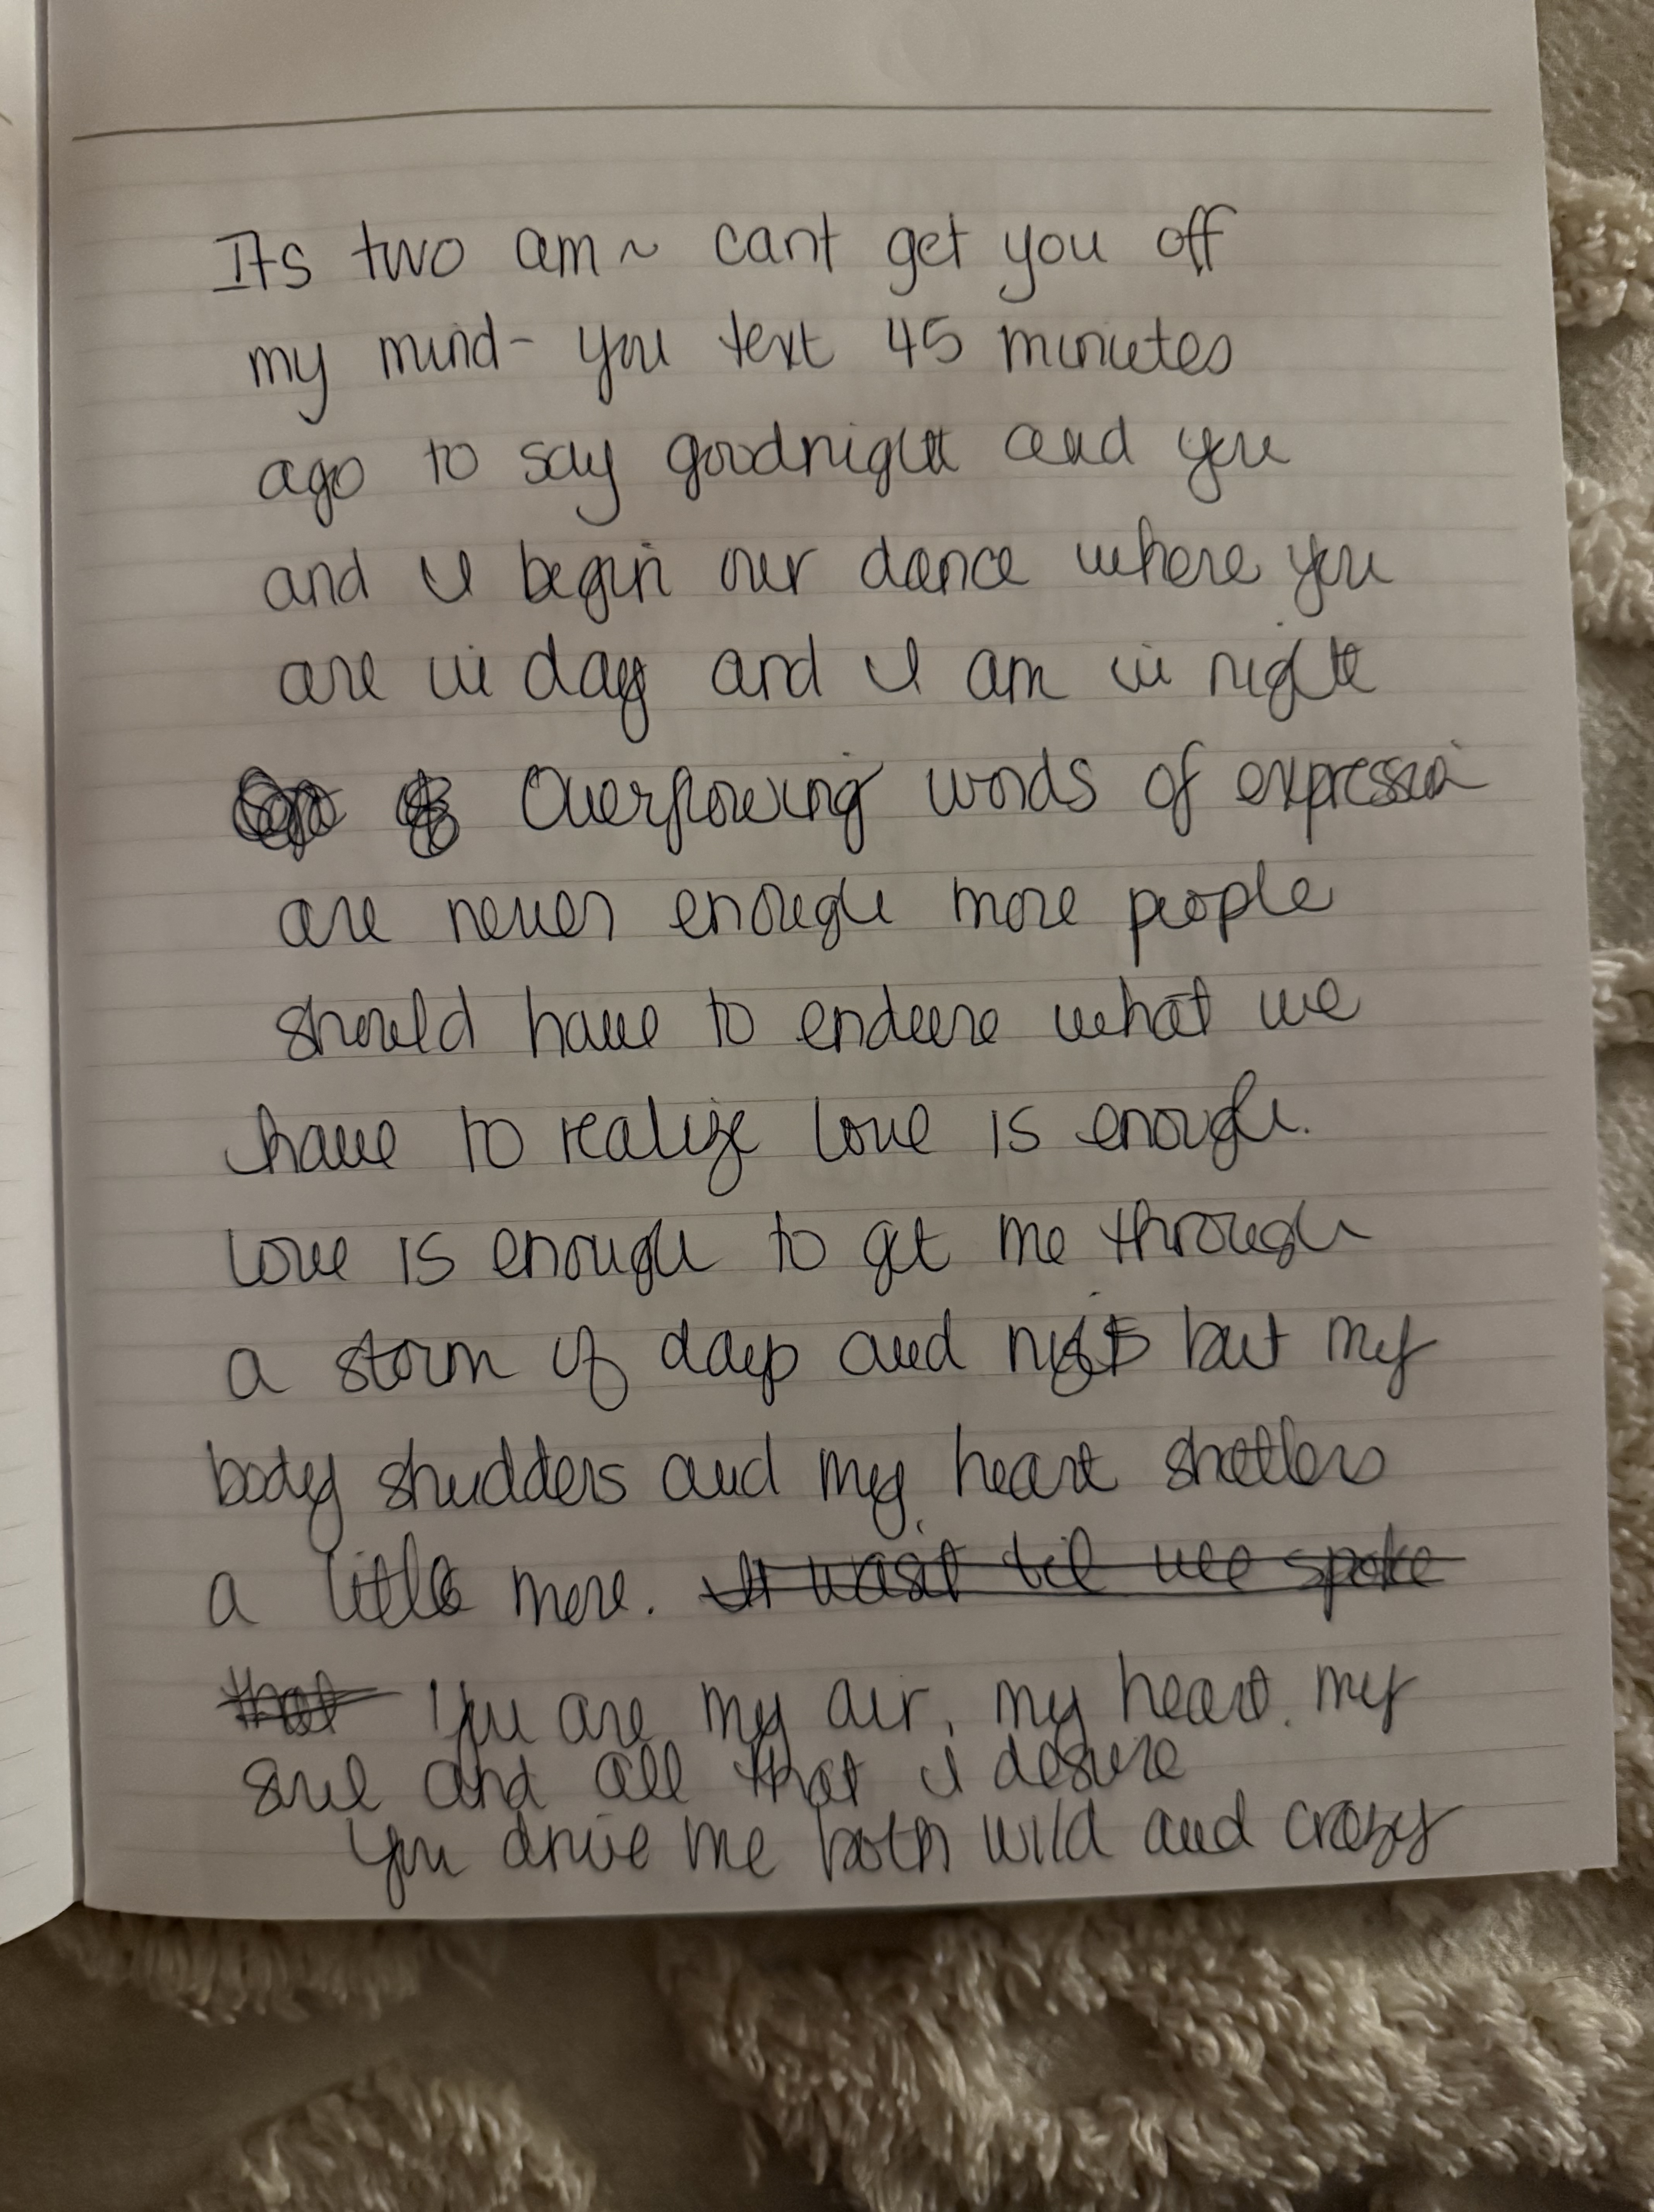 Its two am ~ cant get you off
my mind - you text 45 minutes
ago to say goodnight and you
and I begin our dance where you
are in day and I am in night
Overflowing words of expression
are never enough more people
should have to endure what we
have to realize love is enough.
Love is enough to get me through
a storm of days and nights but my
body shudders and my heart shatters
a little more. It wasn't til we spoke
that You are my air, my heart, my
soul and all that I desire
You drive me both wild and crazy